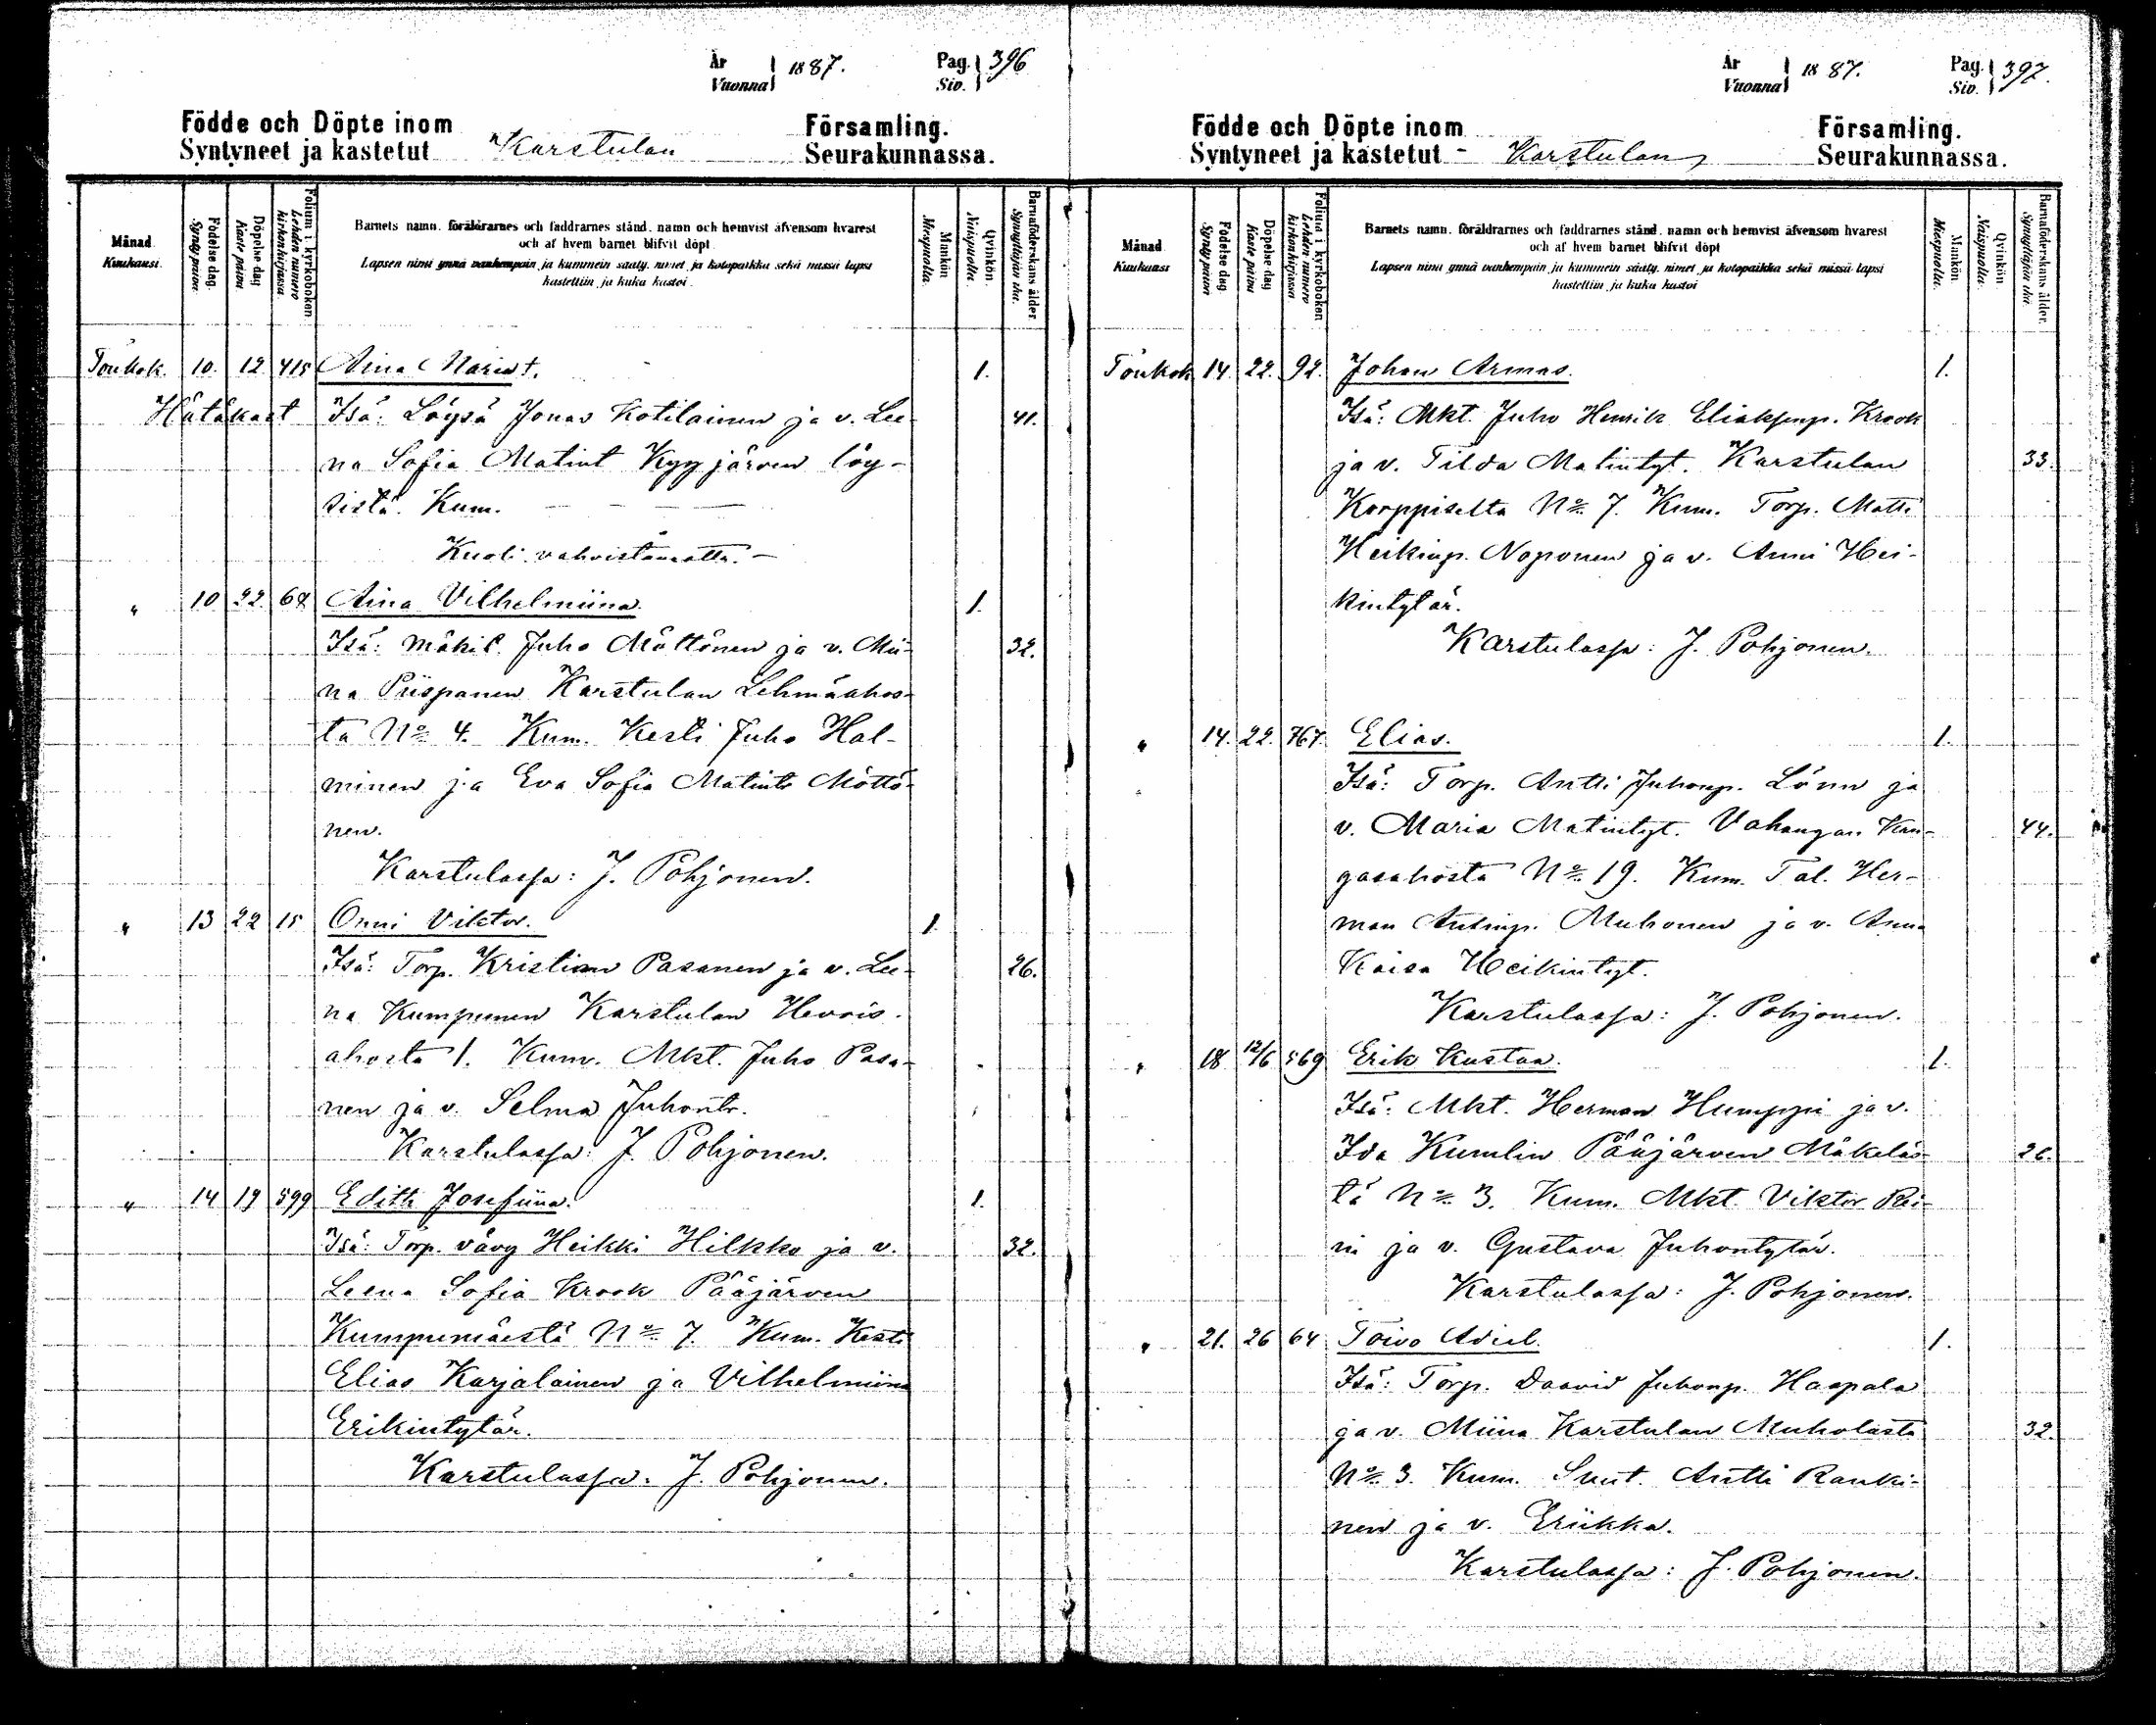 År Vuonna 1887. Pag. Siv. 396
Födde och Döpte inom Församling.
Syntyneet ja kastetut Karstulan Seurakunnassa.
Månad Kuukausi.
Födelse dag. Synty päivä.
Döpelse dag Kaste päivä
Folium i kyrkoboken Lehden numero kirkonkirjassa
Barnets namn, föräldrarnes och faddrarnes stånd, namn och hemvist äfvensom hvarest
och af hvem barnet blifvit döpt
Lapsen nimi ynnä vanhempain ja kummein sääty, nimet ja kotopaikka sekä missä lapsi
kastettiin ja kuka kastoi.
Mankön Miespuolia.
Qvinkön. Naispuolia.
Barnaföderskans ålder. Synnyttäjän ikä.
Toukok. 10. 12 415 Aina Maria †. 1.
Hätäkast Isä: Löysä Jonas Kotilainen ja v. Lee- 41.
na Sofia Matint Kyyjärven löy-
sistä. Kum. — — — —
Kuoli vahvistamatta. —
" 10 22. 68 Aina Vilhelmiina. 1.
Isä: Mäkil. Juho Möttönen ja v. Mii- 32.
na Piispanen Karstulan Lehmäahos-
ta No 4. Kum. Kesti Juho Hal-
minen ja Eva Sofia Matintr Möttö-
nen.
Karstulassa: J. Pohjonen.
" 13 22 15 Onni Viktor. 1.
Isä: Torp. Kristian Pasanen ja v. Lee- 26.
na Kumpunen Karstulan Hevois-
ahosta 1. Kum. Mkt. Juho Pasa-
nen ja v. Selma Juhontr.
Karstulassa: J. Pohjonen.
" 14 19 599 Edith Josefiina. 1.
Isä: Torp. vävy Heikki Hilkko ja v. 32.
Leena Sofia Krook Pääjärven
Kumpumäestä No 7. Kum. Kesti
Elias Karjalainen ja Vilhelmiina
Erikintytär.
Karstulassa: J. Pohjonen.
År Vuonna 1887. Pag. Siv. 397.
Födde och Döpte inom Församling.
Syntyneet ja kastetut - Karstulan Seurakunnassa.
Månad Kuukausi
Födelse dag Synty päivä
Döpelse dag Kaste päivä
Folium i kyrkoboken Lehden numero kirkonkirjassa
Barnets namn, föräldrarnes och faddrarnes stånd, namn och hemvist äfvensom hvarest
och af hvem barnet blifvit döpt
Lapsen nimi ynnä vanhempain ja kummein sääty, nimet ja kotopaikka sekä missä lapsi
kastettiin ja kuka kastoi
Mankön Miespuolia.
Qvinkön Naispuolia.
Barnaföderskans ålder. Synnyttäjän ikä.
Toukok 14. 22. 92. Johan Armas. 1.
Isä: Mkt. Juho Henrik Eliaksenp. Krook
ja v. Tilda Matintyt. Karstulan 33.
Korppiselta No 7. Kum. Torp. Matti
Heikinp. Noponen ja v. Anni Hei-
kintytär.
Karstulassa: J. Pohjonen.
" 14. 22. 767. Elias. 1.
Isä: Torp. Antti Juhonp. Lönn ja
v. Maria Matintyt. Vahangan Kan- 44.
gasahosta No 19. Kum. Tal. Her-
man Antinp. Muhonen ja v. Anna
Kaisa Heikintyt.
Karstulassa: J. Pohjonen.
" 18 12/6 569 Erik Kustaa. 1.
Isä: Mkt. Herman Humppi ja v.
Ida Kumlin Pääjärven Mäkeläs- 26.
tä No 3. Kum. Mkt. Viktor Rei-
ni ja v. Gustava Juhontytär.
Karstulassa: J. Pohjonen.
" 21. 26 64 Toivo Adiel. 1.
Isä: Torp. Daavid Juhonp. Haapala
ja v. Miina Karstulan Muholasta 32.
No 3. Kum. Suut. Antti Ranki-
nen ja v. Eriikka.
Karstulassa: J. Pohjonen.